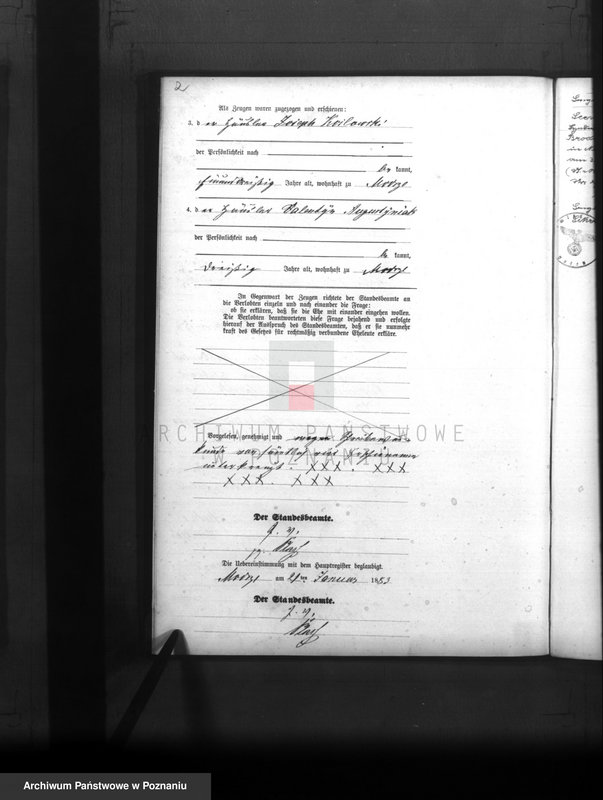 2
Als Zeugen waren zugezogen und erschienen:
3. d er Häusler Joseph Koslowski
der Persönlichkeit nach
be kannt,
einunddreißig Jahre alt, wohnhaft zu
4. d er Häusler Valentyn Augustyniak
der Persönlichkeit nach
be kannt,
dreißig Jahre alt, wohnhaft zu
In Gegenwart der Zeugen richtete der Standesbeamte an
die Verlobten einzeln und nach einander die Frage:
ob sie erklären, daß sie die Ehe mit einander eingehen wollen.
Die Verlobten beantworteten diese Frage bejahend und erfolgte
hierauf der Ausspruch des Standesbeamten, daß er sie nunmehr
kraft des Gesetzes für rechtmäßig verbundene Eheleute erkläre.
ARCHIWUM PAŃSTWOWE
W POZNANIU
Vorgelesen, genehmigt und wegen Schreibensun-
kunde von sämtlich vier Erschienenen
unterkreuzt. XXX. XXX
XXX. XXX
Der Standesbeamte.
J. V.
Die Uebereinstimmung mit dem Hauptregister beglaubigt.
am 21ten Januar 1883
Der Standesbeamte.
J. V.
Archiwum Państwowe w Poznaniu